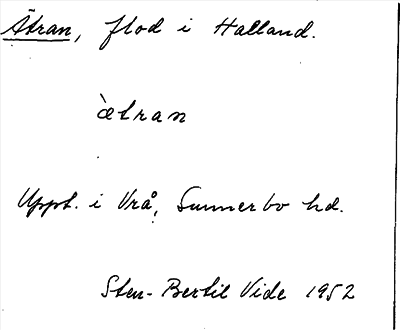 Ätran, flod i Halland.
`ætran
Uppt. i Vrå, Sunnerbo hd.
Sten-Bertil Vide 1952